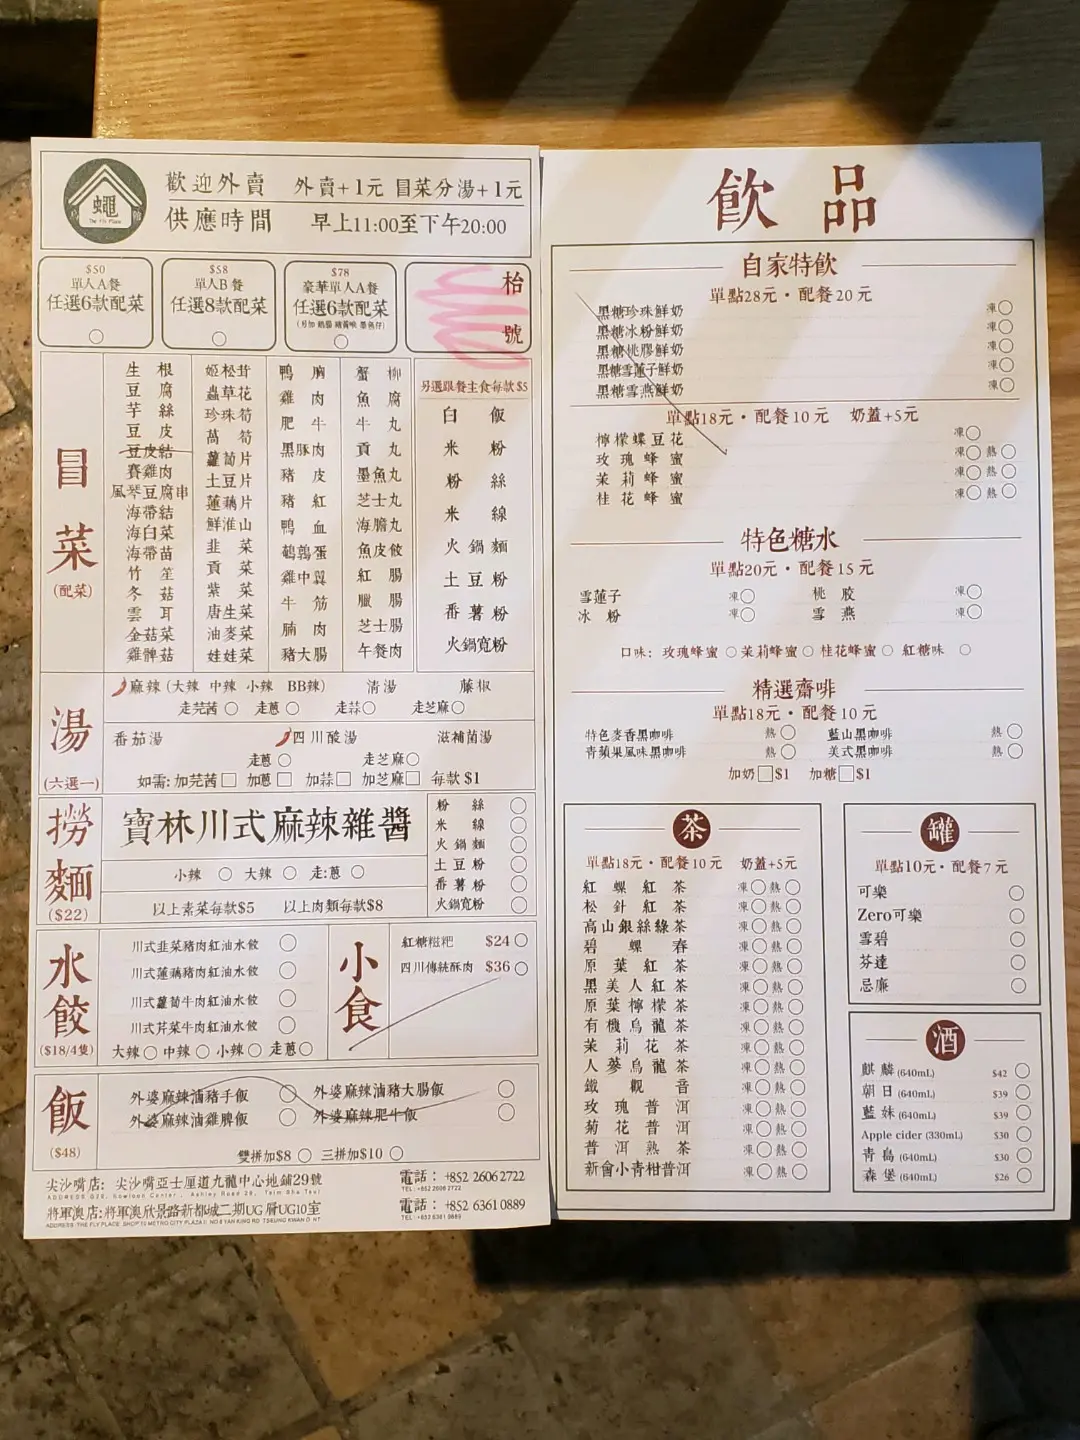 蠅
The Fly Place
歡迎外賣 外賣+1元 冒菜分湯+1元
供應時間 早上11:00至下午20:00
$50
單人A餐
任選6款配菜
$58
單人B餐
任選8款配菜
$78
豪華單人A餐
任選6款配菜
枱號
冒菜
(配菜)
生根
豆腐
芋絲
豆皮
豆皮結
賽雞肉
風琴豆腐串
海帶結
海白菜
海帶苗
竹笙
冬菇
雲耳
金菇菜
雞髀菇
姬松茸
蟲草花
珍珠筍
萵筍
蘿蔔片
土豆片
蓮藕片
鮮淮山
韭菜
貢菜
紫菜
唐生菜
油麥菜
娃娃菜
鴨胸
雞肉
肥牛
黑豚肉
豬皮
豬紅
鴨血
鵪鶉蛋
雞中翼
牛筋
腩肉
豬大腸
蟹柳
魚腐
牛丸
貢丸
墨魚丸
芝士丸
海膽丸
魚皮餃
紅腸
臘腸
芝士腸
午餐肉
另選跟餐主食每款$5
白飯
米粉
粉絲
米線
火鍋麵
土豆粉
番薯粉
火鍋寬粉
湯
(六選一)
麻辣 (大辣 中辣 小辣 BB辣) 清湯 藤椒
走芫茜 走蔥 走蒜 走芝麻
番茄湯 四川酸湯 滋補菌湯
走蔥 走芝麻
如需: 加芫茜 加蔥 加蒜 加芝麻 每款 $1
撈麵
($22)
寶林川式麻辣雜醬
小辣 大辣 走:蔥
以上素菜每款$5 以上肉類每款$8
粉絲
米線
火鍋麵
土豆粉
番薯粉
火鍋寬粉
水餃
($18/4隻)
川式韭菜豬肉紅油水餃
川式蓮藕豬肉紅油水餃
川式蘿蔔牛肉紅油水餃
川式芹菜牛肉紅油水餃
大辣 中辣 小辣 走蔥
小食
紅糖糍粑 $24
四川傳統酥肉 $36
飯
($48)
外婆麻辣滷豬手飯
外婆麻辣滷豬大腸飯
外婆麻辣滷雞脾飯
外婆麻辣肥牛飯
雙拼加$8 三拼加$10
尖沙嘴店: 尖沙嘴亞士厘道九龍中心地舖29號
電話: +852 2606 2722
TEL: +852 2606 2722
將軍澳店:將軍澳欣景路新都城二期UG層UG10室
電話: +852 6361 0889
TEL: +852 6361 0889
飲品
自家特飲
單點28元・配餐20元
黑糖珍珠鮮奶 凍
黑糖冰粉鮮奶 凍
黑糖桃膠鮮奶 凍
黑糖雪蓮子鮮奶 凍
黑糖雪燕鮮奶 凍
單點18元・配餐10元 奶蓋+5元
檸檬蝶豆花 凍
玫瑰蜂蜜 凍 熱
茉莉蜂蜜 凍 熱
桂花蜂蜜 凍 熱
特色糖水
單點20元・配餐15元
雪蓮子 凍
桃膠 凍
冰粉 凍
雪燕 凍
口味: 玫瑰蜂蜜 茉莉蜂蜜 桂花蜂蜜 紅糖味
精選齋啡
單點18元・配餐10元
特色麥香黑咖啡 熱
藍山黑咖啡 熱
青蘋果風味黑咖啡 熱
美式黑咖啡 熱
加奶 $1 加糖 $1
茶
單點18元・配餐10元 奶蓋+5元
紅螺紅茶 凍 熱
松針紅茶 凍 熱
高山銀絲綠茶 凍 熱
碧螺春 凍 熱
原葉紅茶 凍 熱
黑美人紅茶 凍 熱
原葉檸檬茶 凍 熱
有機烏龍茶 凍 熱
茉莉花茶 凍 熱
人蔘烏龍茶 凍 熱
鐵觀音 凍 熱
玫瑰普洱 凍 熱
菊花普洱 凍 熱
普洱熟茶 凍 熱
新會小青柑普洱 凍 熱
罐
單點10元・配餐7元
可樂
Zero可樂
雪碧
芬達
忌廉
酒
麒麟 (640mL) $42
朝日 (640mL) $39
藍妹 (640mL) $39
Apple cider (330mL) $30
青島 (640mL) $30
森堡 (640mL) $26